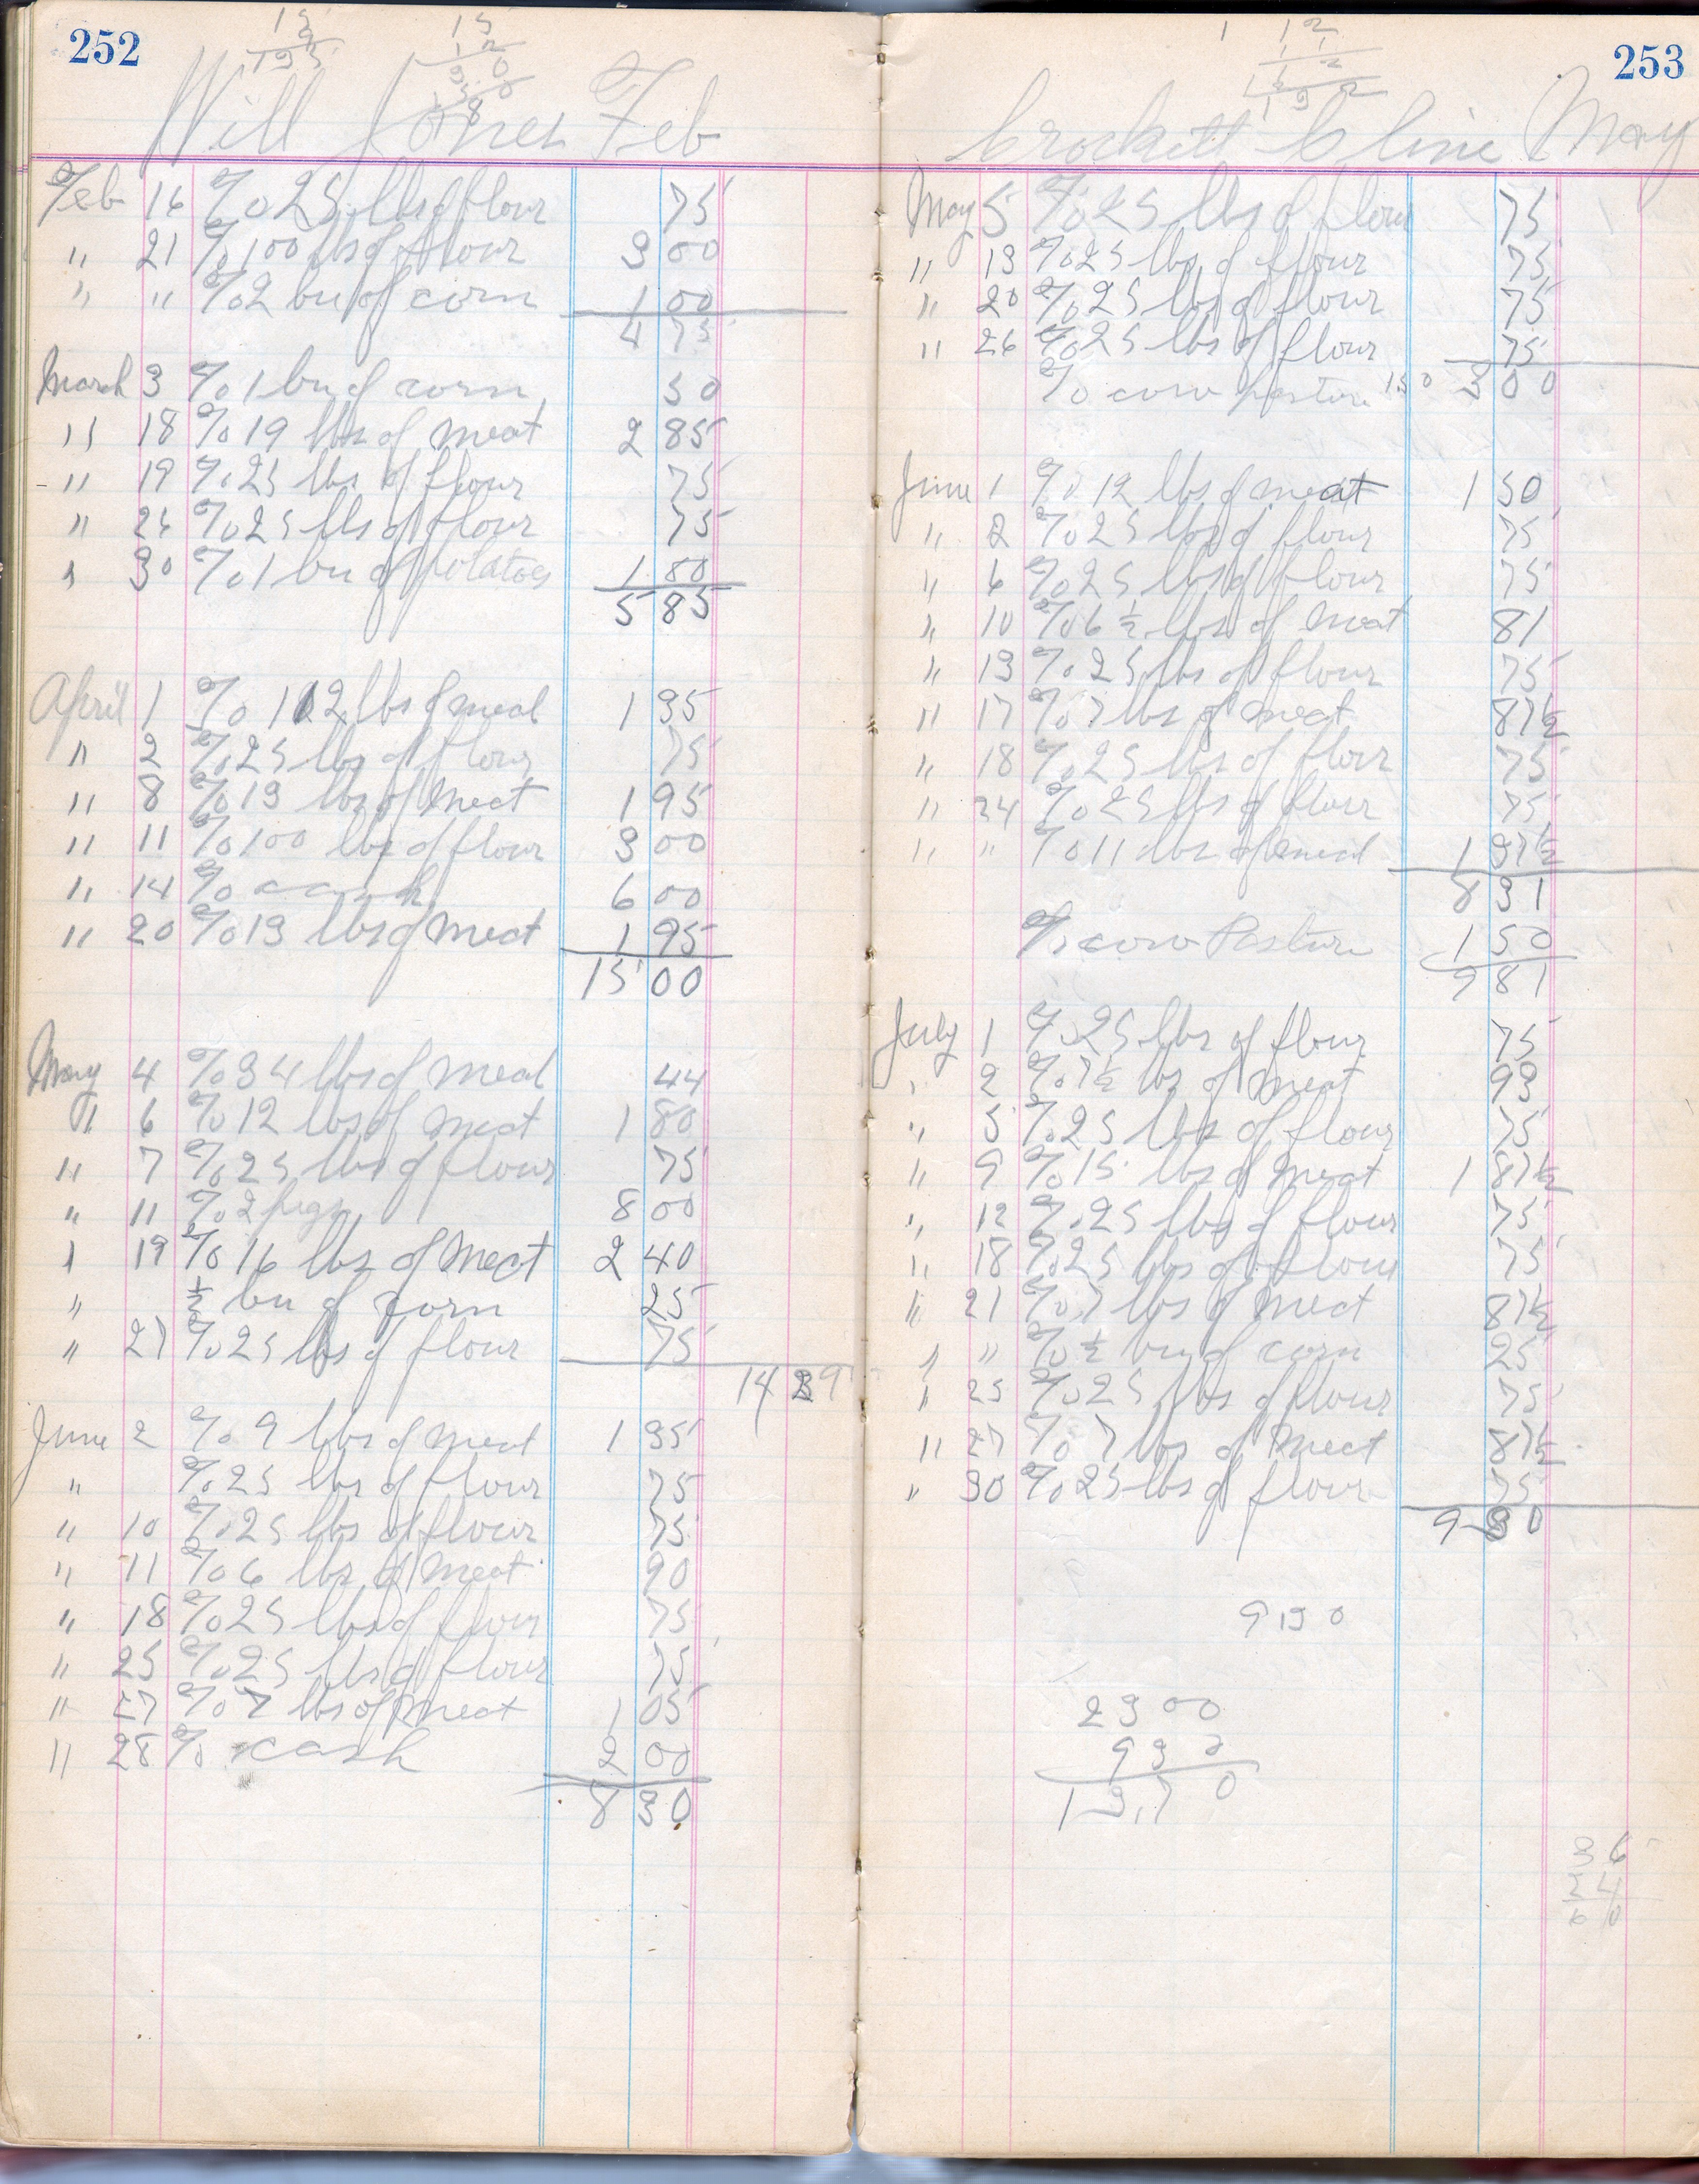 252
15
9
195
15
12
30
15
180
Will Jones Feb
Feb 16 % 25 lbs of flour 75
" 21 % 100 lbs of flour 3 00
" " % 2 bu of corn 1 00
4 75
March 3 % 1 bu of corn 50
" 18 % 19 lbs of meat 2 85
" 19 % 25 lbs of flour 75
" 26 % 25 lbs of flour 75
" 30 % 1 bu of potatoes 1 80
5 85
April 1 % 12 lbs of meal 1 35
" 2 % 25 lbs of flour 75
" 8 % 13 lbs of meat 1 95
" 11 % 100 lbs of flour 3 00
" 14 % cash 6 00
" 20 % 13 lbs of meat 1 95
15 00
May 4 % 34 lbs of meal 44
" 6 % 12 lbs of meat 1 80
" 7 % 25 lbs of flour 75
" 11 % 2 pigs 8 00
" 19 % 16 lbs of meat 2 40
" ½ bu of corn 25
" 27 % 25 lbs of flour 75
14 39
June 2 % 9 lbs of meat 1 35
" % 25 lbs of flour 75
" 10 % 25 lbs of flour 75
" 11 % 6 lbs of meat 90
" 18 % 25 lbs of flour 75
" 25 % 25 lbs of flour 75
" 27 % 7 lbs of meat 1 05
" 28 % cash 2 00
8 30
253
1 12
Crockett Cline May
May 5 % 25 lbs of flour 75
" 13 % 25 lbs of flour 75
" 20 % 25 lbs of flour 75
" 26 % 25 lbs of flour 75
% cow pasture 150 3 00
June 1 % 12 lbs of meat 1 50
" 2 % 25 lbs of flour 75
" 6 % 25 lbs of flour 75
" 10 % 6 ½ lbs of meat 81
" 13 % 25 lbs of flour 75
" 17 % 7 lbs of meat 87½
" 18 % 25 lbs of flour 75
" 24 % 25 lbs of flour 75
" " % 11 lbs of meat 1 37½
8 31
% cow Pasture 1 50
9 81
July 1 % 25 lbs of flour 75
" 2 % 7½ lbs of meat 93
" 5 % 25 lbs of flour 75
" 9 % 15 lbs of meat 1 87½
" 12 % 25 lbs of flour 75
" 18 % 25 lbs of flour 75
" 21 % 7 lbs of meat 87½
" " % ½ bu of corn 25
" 25 % 25 lbs of flour 75
" 27 % 7 lbs of meat 87½
" 30 % 25 lbs of flour 75
9 30
9 30
23 00
9 30
13.70
36
24
60